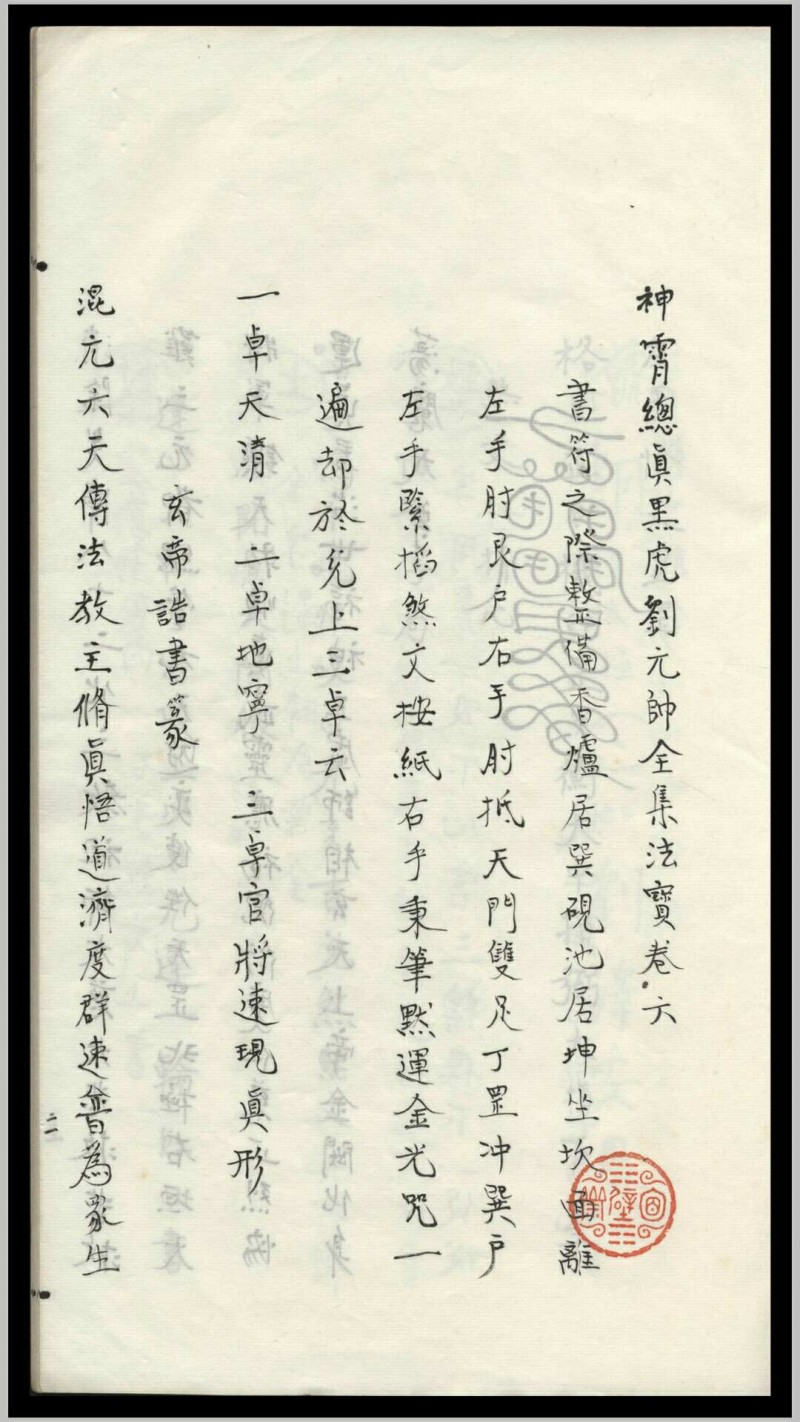 神霄總眞黑虎劉元帥全集法寶卷六
書符之際整備香爐居巽硯池居坤坐坎面離
左手肘艮戶右手肘抵天門雙足丁罡冲巽戶
左手緊掐煞文按紙右手秉筆默運金光咒一
遍却於兊上三卓云
一卓天清二卓地寧三卓官將速現眞形
玄帝誥書篆
混亢六天傳法教主脩眞悟道濟度群迷普為衆生
二